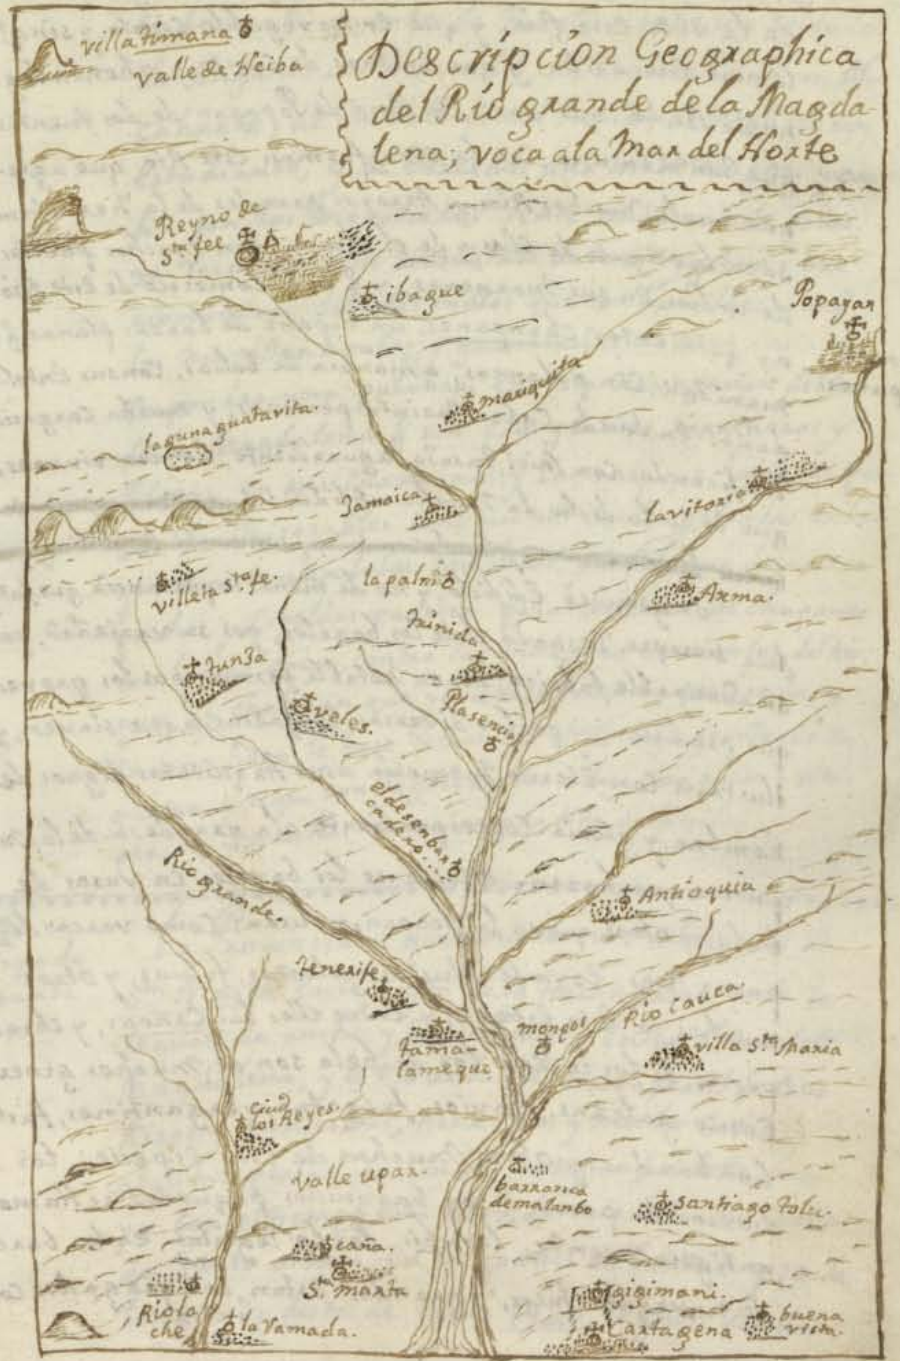 villa timana
valle de Neiba
Descripcion Geographica
del Rio grande de la Magda-
lena; voca a la Mar del Norte
Reyno de
Sta fee
ibague
Popayan
mariquita
laguna guatavita.
Jamaica
la vitoria
villeta sta fe.
la palm
Arma.
trinida
tunja
Plasencia
veles.
el desenbar
cadero...
Rio grande.
Antioquia
tenerife
Rio Cauca
monpox
tama-
lameque
villa Sta Maria
ciud
los Reyes.
valle upar.
barranca
de matanbo
santiago tolu.
caña.
Sta marta
Riola
che
la Ramada.
gigimani.
Cartagena
buena
vista.